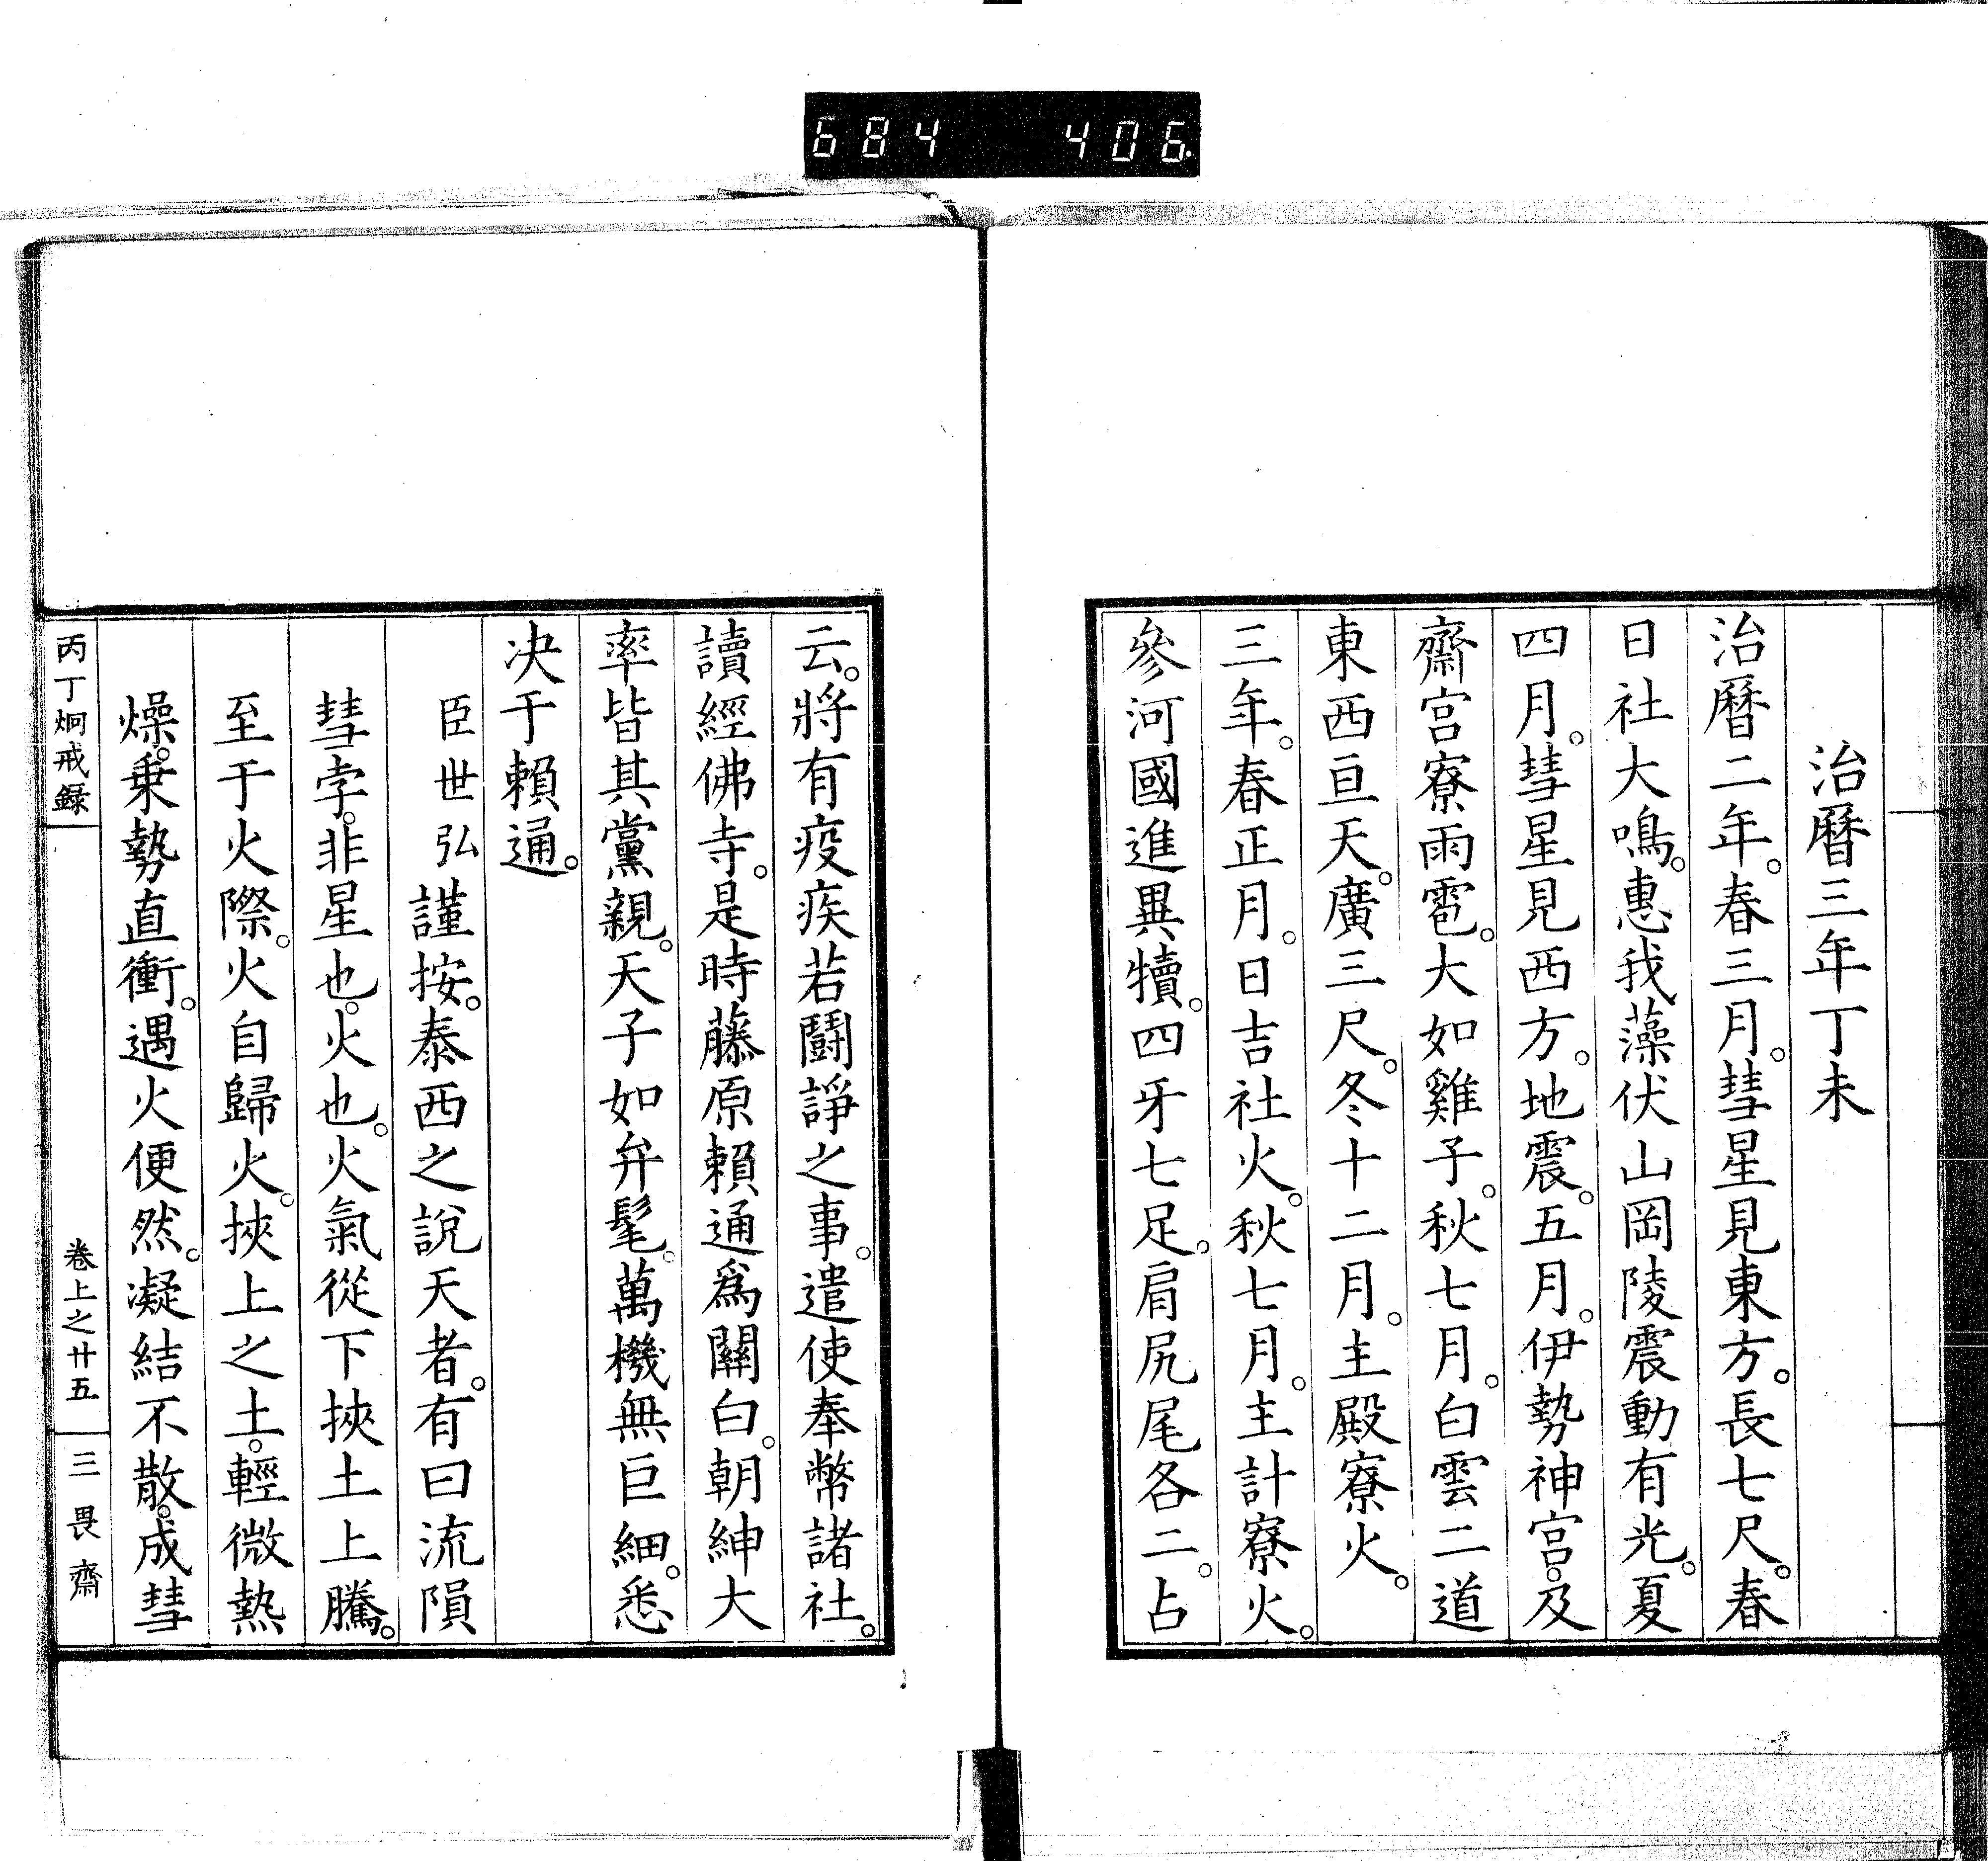 684 406.
治暦三年丁未
治暦二年。春三月。彗星見東方。長七尺。春
日社大鳴。惠我藻伏山岡陵震動有光。夏
四月。彗星見西方。地震。五月。伊勢神宮。及
齋宮寮雨雹。大如雞子。秋七月。白雲二道
東西亘天。廣三尺。冬十二月。主殿寮火。
三年。春正月。日吉社火。秋七月。主計寮火。
參河國進異犢。四牙七足。肩尻尾各二。占
云。將有疫疾若鬪諍之事。遣使奉幣諸社。
讀經佛寺。是時藤原賴通爲關白。朝紳大
率皆其黨親。天子如弁髦。萬機無巨細。悉
决于賴通。
臣世弘謹按。泰西之說天者。有曰流隕
彗孛。非星也。火也。火氣從下挾土上騰。
至于火際。火自歸火。挾上之土。輕微熱
燥。乗勢直衝。遇火便然。凝結不散。成彗
丙丁烱戒録
卷上之廿五
三畏齋